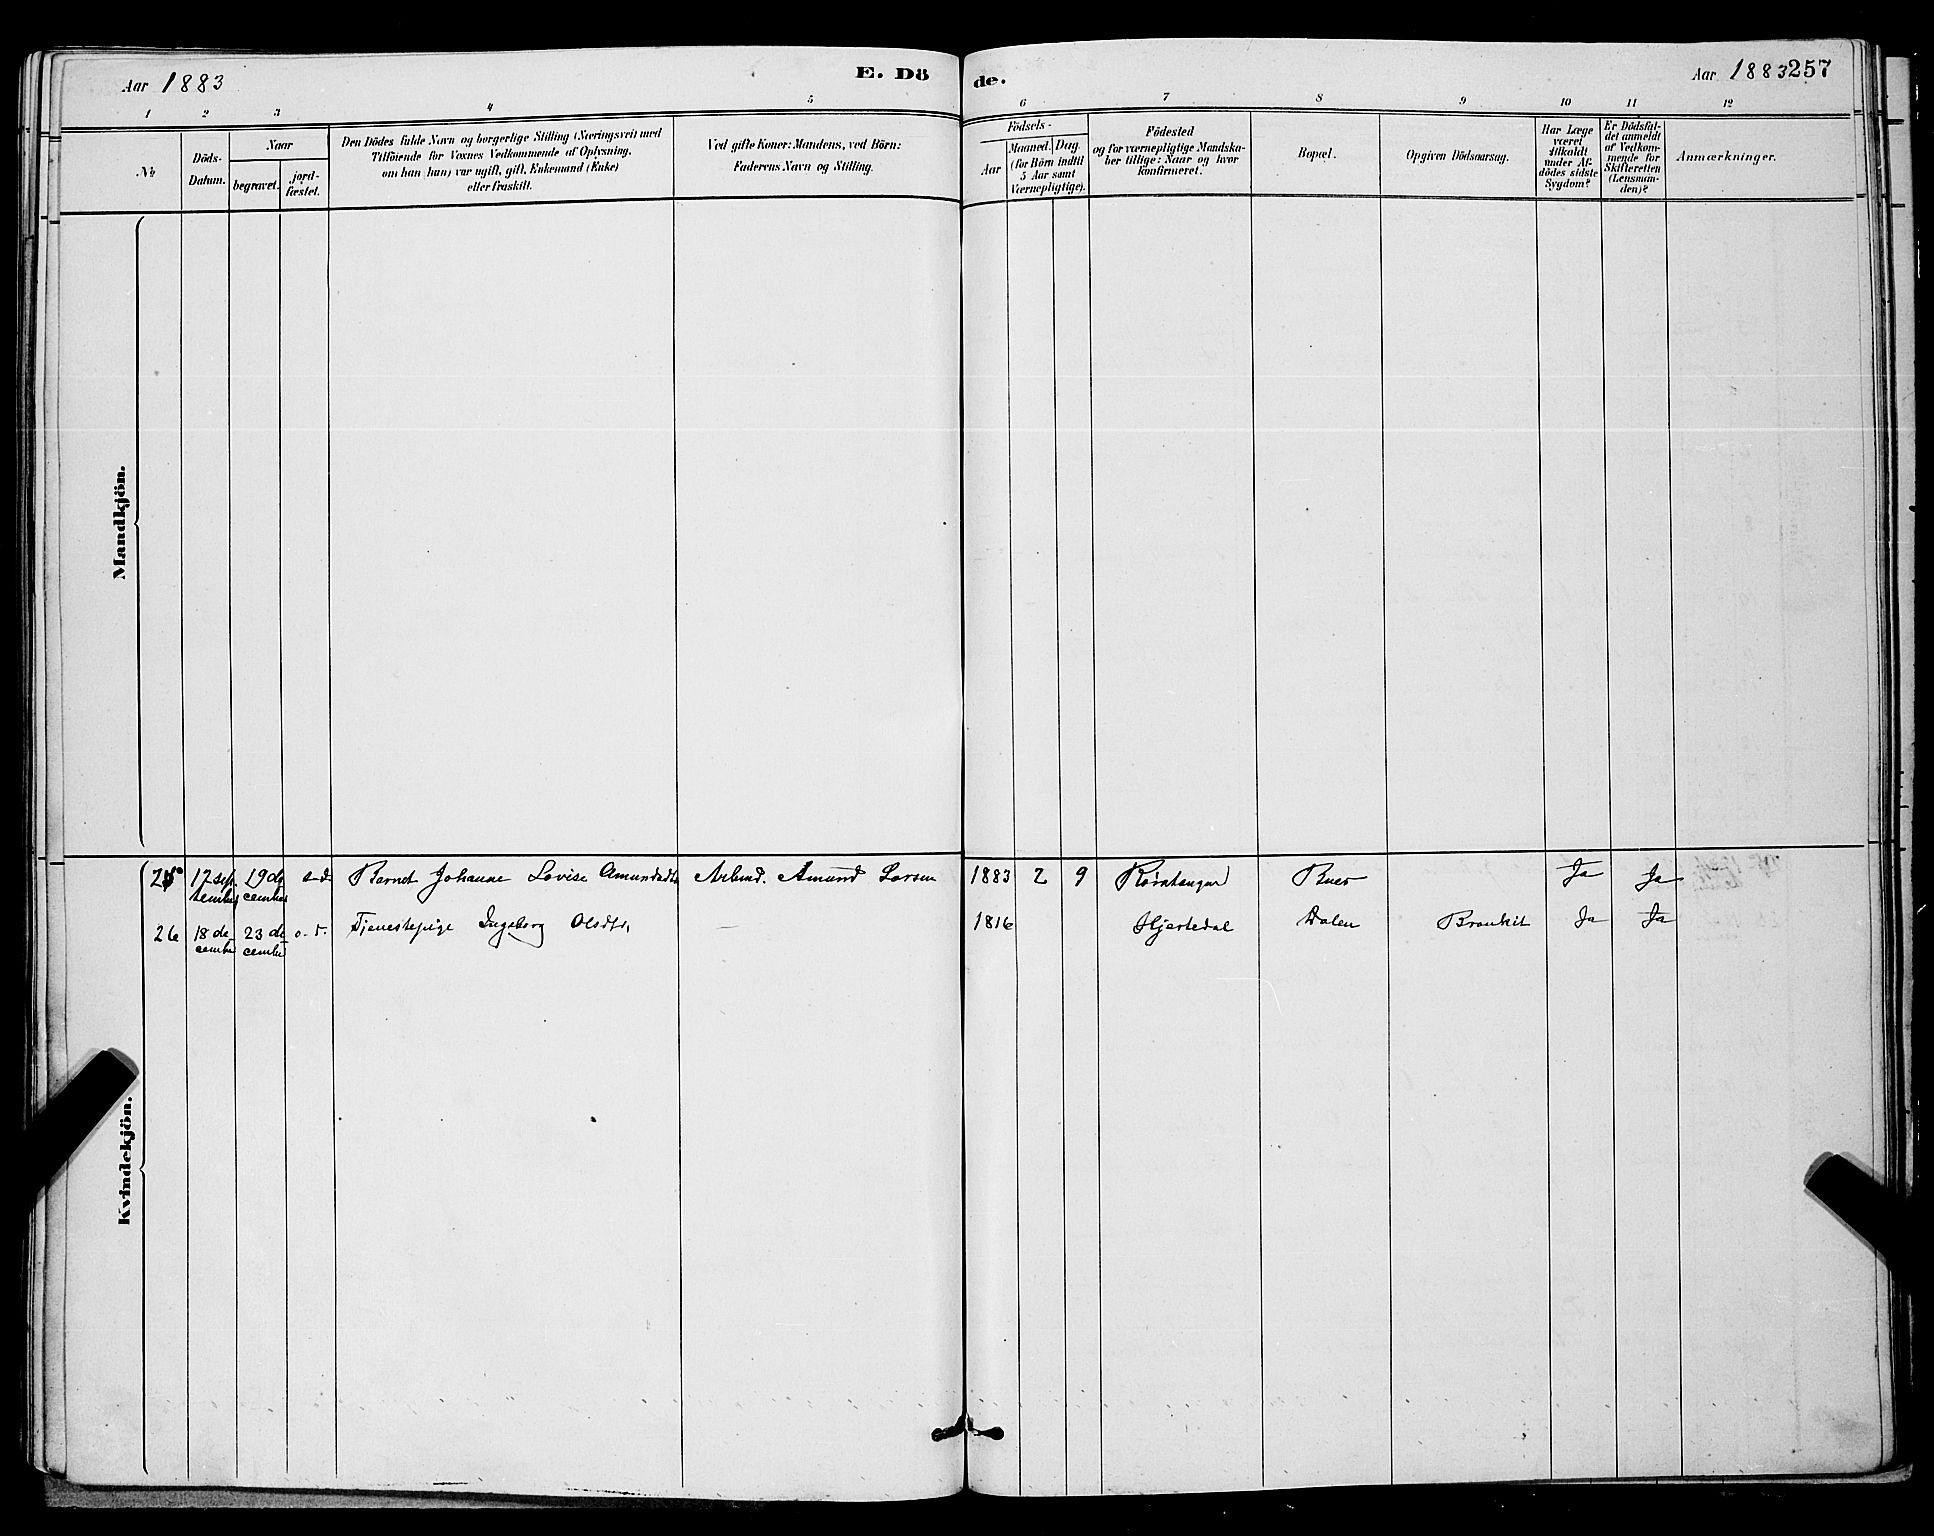 Aar 1883
E. Dö
de.
Aar 1883 257
1 2 3 4 5 6 7 8 9 10 11 12
No
Döds-
Datum.
Naar
begravet.
jord-
fæstet.
Den Dödes fulde Navn og borgerlige Stilling (Næringsvei) med
Tilföiende for Voxnes Vedkommende af Oplysning,
om han (hun) var ugift, gift, Enkemand (Enke)
eller fraskilt.
Ved gifte Koner: Mandens, ved Börn:
Faderens Navn og Stilling.
Födsels-
Aar
Maaned.
Dag
(for Börn indtil
5 Aar samt
Værnepligtige).
Födested
og for værnepligtige Mandska-
ber tillige: Naar og hvor
konfirmeret.
Bopæl.
Opgiven Dödsaarsag.
Har Læge
været
tilkaldt
under Af-
dödes sidste
Sygdom?
Er Dödsfal-
det anmeldt
af Vedkom-
mende for
Skifteretten
(Lensman-
den)?
Anmærkninger.
Mandkjön.
Kvindekjön.
25 12 sep 19 de Barnet Johanne Lovise Amundsdtr Arbmd. Amund Larsen 1883 2 9 Ja Ja
tember cember
26 18 de 23 de Tjenestepige Ingeborg Olsdtr. — 1816 Hjertedal Dalen Bronkit Ja Ja
cember cember